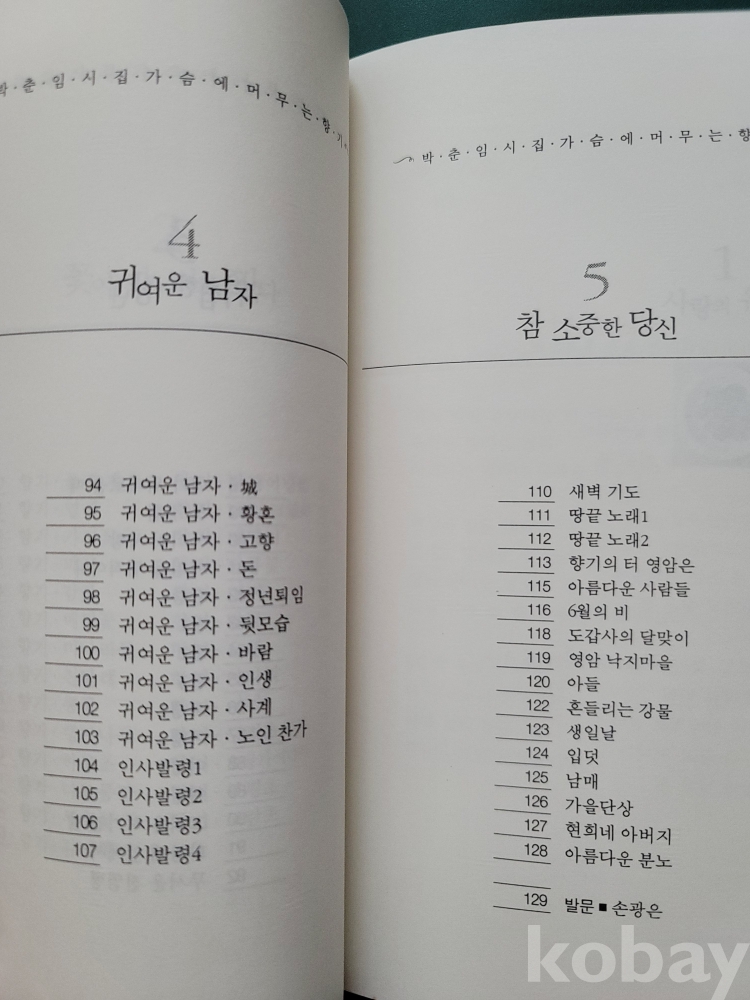 박·춘·임·시·집·가·슴·에·머·무·는·향·기
4
귀여운 남자
94 귀여운 남자·城
95 귀여운 남자·황혼
96 귀여운 남자·고향
97 귀여운 남자·돈
98 귀여운 남자·정년퇴임
99 귀여운 남자·뒷모습
100 귀여운 남자·바람
101 귀여운 남자·인생
102 귀여운 남자·사계
103 귀여운 남자·노인 찬가
104 인사발령1
105 인사발령2
106 인사발령3
107 인사발령4
박·춘·임·시·집·가·슴·에·머·무·는·향
5
참 소중한 당신
110 새벽 기도
111 땅끝 노래1
112 땅끝 노래2
113 향기의 터 영암은
115 아름다운 사람들
116 6월의 비
118 도갑사의 달맞이
119 영암 낙지마을
120 아들
122 흔들리는 강물
123 생일날
124 입덧
125 남매
126 가을단상
127 현희네 아버지
128 아름다운 분노
129 발문 ■ 손광은
kobay